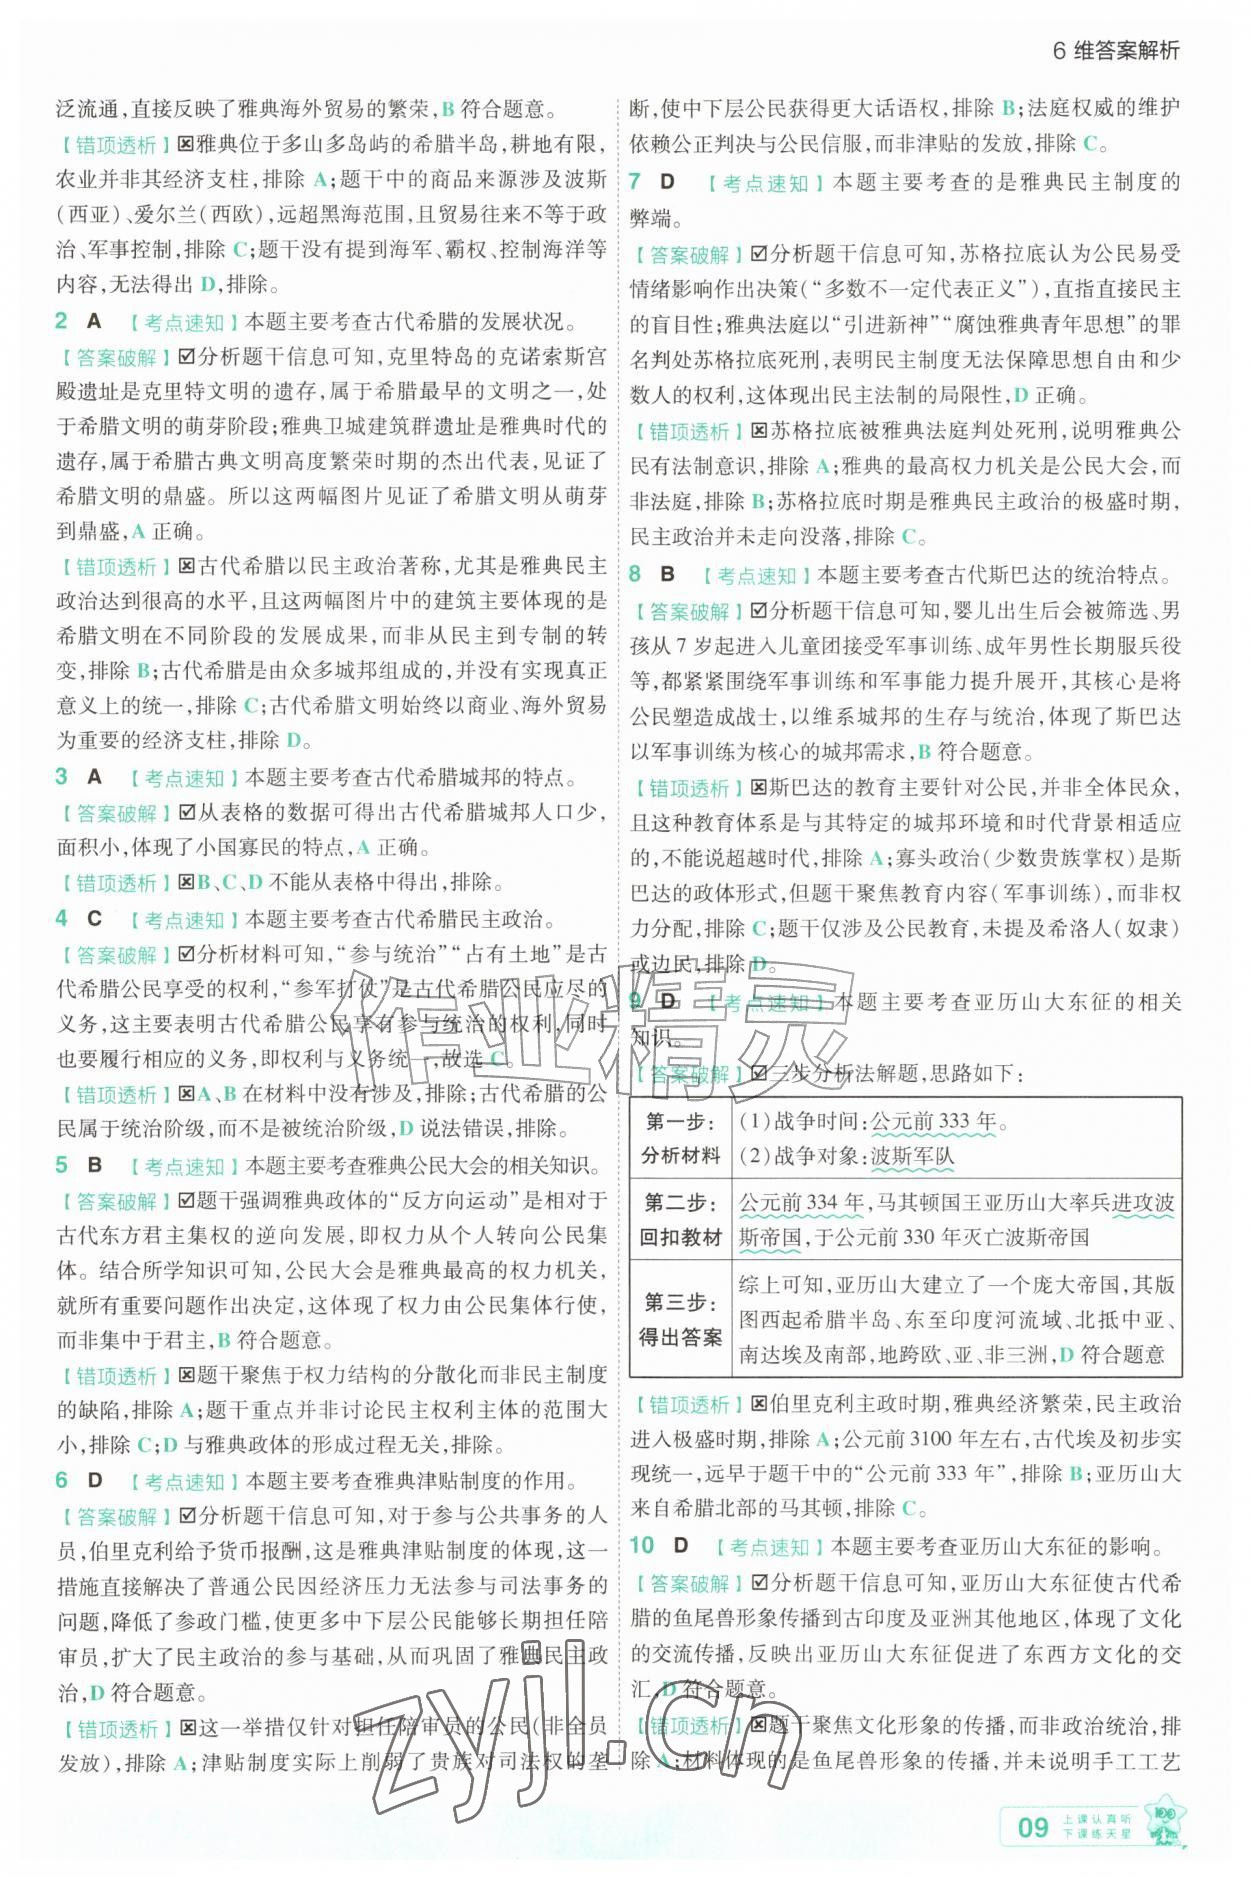 6 维答案解析
泛流通,直接反映了雅典海外贸易的繁荣,B 符合题意。
【错项透析】☒雅典位于多山多岛屿的希腊半岛,耕地有限,
农业并非其经济支柱,排除 A;题干中的商品来源涉及波斯
(西亚)、爱尔兰(西欧),远超黑海范围,且贸易往来不等于政
治、军事控制,排除 C;题干没有提到海军、霸权、控制海洋等
内容,无法得出 D,排除。
2 A 【考点速知】本题主要考查古代希腊的发展状况。
【答案破解】☑分析题干信息可知,克里特岛的克诺索斯宫
殿遗址是克里特文明的遗存,属于希腊最早的文明之一,处
于希腊文明的萌芽阶段;雅典卫城建筑群遗址是雅典时代的
遗存,属于希腊古典文明高度繁荣时期的杰出代表,见证了
希腊文明的鼎盛。所以这两幅图片见证了希腊文明从萌芽
到鼎盛,A 正确。
【错项透析】☒古代希腊以民主政治著称,尤其是雅典民主
政治达到很高的水平,且这两幅图片中的建筑主要体现的是
希腊文明在不同阶段的发展成果,而非从民主到专制的转
变,排除 B;古代希腊是由众多城邦组成的,并没有实现真正
意义上的统一,排除 C;古代希腊文明始终以商业、海外贸易
为重要的经济支柱,排除 D。
3 A 【考点速知】本题主要考查古代希腊城邦的特点。
【答案破解】☑从表格的数据可得出古代希腊城邦人口少,
面积小,体现了小国寡民的特点,A 正确。
【错项透析】☒B、C、D 不能从表格中得出,排除。
4 C 【考点速知】本题主要考查古代希腊民主政治。
【答案破解】☑分析材料可知,“参与统治”“占有土地”是古
代希腊公民享受的权利,“参军打仗”是古代希腊公民应尽的
义务,这主要表明古代希腊公民享有参与统治的权利,同时
也要履行相应的义务,即权利与义务统一,故选 C。
【错项透析】☒A、B 在材料中没有涉及,排除;古代希腊的公
民属于统治阶级,而不是被统治阶级,D 说法错误,排除。
5 B 【考点速知】本题主要考查雅典公民大会的相关知识。
【答案破解】☑题干强调雅典政体的“反方向运动”是相对于
古代东方君主集权的逆向发展,即权力从个人转向公民集
体。结合所学知识可知,公民大会是雅典最高的权力机关,
就所有重要问题作出决定,这体现了权力由公民集体行使,
而非集中于君主,B 符合题意。
【错项透析】☒题干聚焦于权力结构的分散化而非民主制度
的缺陷,排除 A;题干重点并非讨论民主权利主体的范围大
小,排除 C;D 与雅典政体的形成过程无关,排除。
6 D 【考点速知】本题主要考查雅典津贴制度的作用。
【答案破解】☑分析题干信息可知,对于参与公共事务的人
员,伯里克利给予货币报酬,这是雅典津贴制度的体现,这一
措施直接解决了普通公民因经济压力无法参与司法事务的
问题,降低了参政门槛,使更多中下层公民能够长期担任陪
审员,扩大了民主政治的参与基础,从而巩固了雅典民主政
治,D 符合题意。
【错项透析】☒这一举措仅针对担任陪审员的公民(非全员
发放),排除 A;津贴制度实际上削弱了贵族对司法权的垄
断,使中下层公民获得更大话语权,排除 B;法庭权威的维护
依赖公正判决与公民信服,而非津贴的发放,排除 C。
7 D 【考点速知】本题主要考查的是雅典民主制度的
弊端。
【答案破解】☑分析题干信息可知,苏格拉底认为公民易受
情绪影响作出决策(“多数不一定代表正义”),直指直接民主
的盲目性;雅典法庭以“引进新神”“腐蚀雅典青年思想”的罪
名判处苏格拉底死刑,表明民主制度无法保障思想自由和少
数人的权利,这体现出民主法制的局限性,D 正确。
【错项透析】☒苏格拉底被雅典法庭判处死刑,说明雅典公
民有法制意识,排除 A;雅典的最高权力机关是公民大会,而
非法庭,排除 B;苏格拉底时期是雅典民主政治的极盛时期,
民主政治并未走向没落,排除 C。
8 B 【考点速知】本题主要考查古代斯巴达的统治特点。
【答案破解】☑分析题干信息可知,婴儿出生后会被筛选、男
孩从 7 岁起进入儿童团接受军事训练、成年男性长期服兵役
等,都紧紧围绕军事训练和军事能力提升展开,其核心是将
公民塑造成战士,以维系城邦的生存与统治,体现了斯巴达
以军事训练为核心的城邦需求,B 符合题意。
【错项透析】☒斯巴达的教育主要针对公民,并非全体民众,
且这种教育体系是与其特定的城邦环境和时代背景相适应
的,不能说超越时代,排除 A;寡头政治(少数贵族掌权)是斯
巴达的政体形式,但题干聚焦教育内容(军事训练),而非权
力分配,排除 C;题干仅涉及公民教育,未提及希洛人(奴隶)
或边民,排除 D。
9 D 【考点速知】本题主要考查亚历山大东征的相关
知识。
【答案破解】☑三步分析法解题,思路如下:
第一步:
分析材料
(1)战争时间:公元前 333 年。
(2)战争对象:波斯军队
第二步:
回扣教材
公元前 334 年,马其顿国王亚历山大率兵进攻波
斯帝国,于公元前 330 年灭亡波斯帝国
第三步:
得出答案
综上可知,亚历山大建立了一个庞大帝国,其版
图西起希腊半岛、东至印度河流域、北抵中亚、
南达埃及南部,地跨欧、亚、非三洲,D 符合题意
【错项透析】☒伯里克利主政时期,雅典经济繁荣,民主政治
进入极盛时期,排除 A;公元前 3100 年左右,古代埃及初步实
现统一,远早于题干中的“公元前 333 年”,排除 B;亚历山大
来自希腊北部的马其顿,排除 C。
10 D 【考点速知】本题主要考查亚历山大东征的影响。
【答案破解】☑分析题干信息可知,亚历山大东征使古代希
腊的鱼尾兽形象传播到古印度及亚洲其他地区,体现了文化
的交流传播,反映出亚历山大东征促进了东西方文化的交
汇,D 符合题意。
【错项透析】☒题干聚焦文化形象的传播,而非政治统治,排
除 A;材料体现的是鱼尾兽形象的传播,并未说明手工工艺
作业精灵
zyjl.cn
09 上课认真听
下课练天星